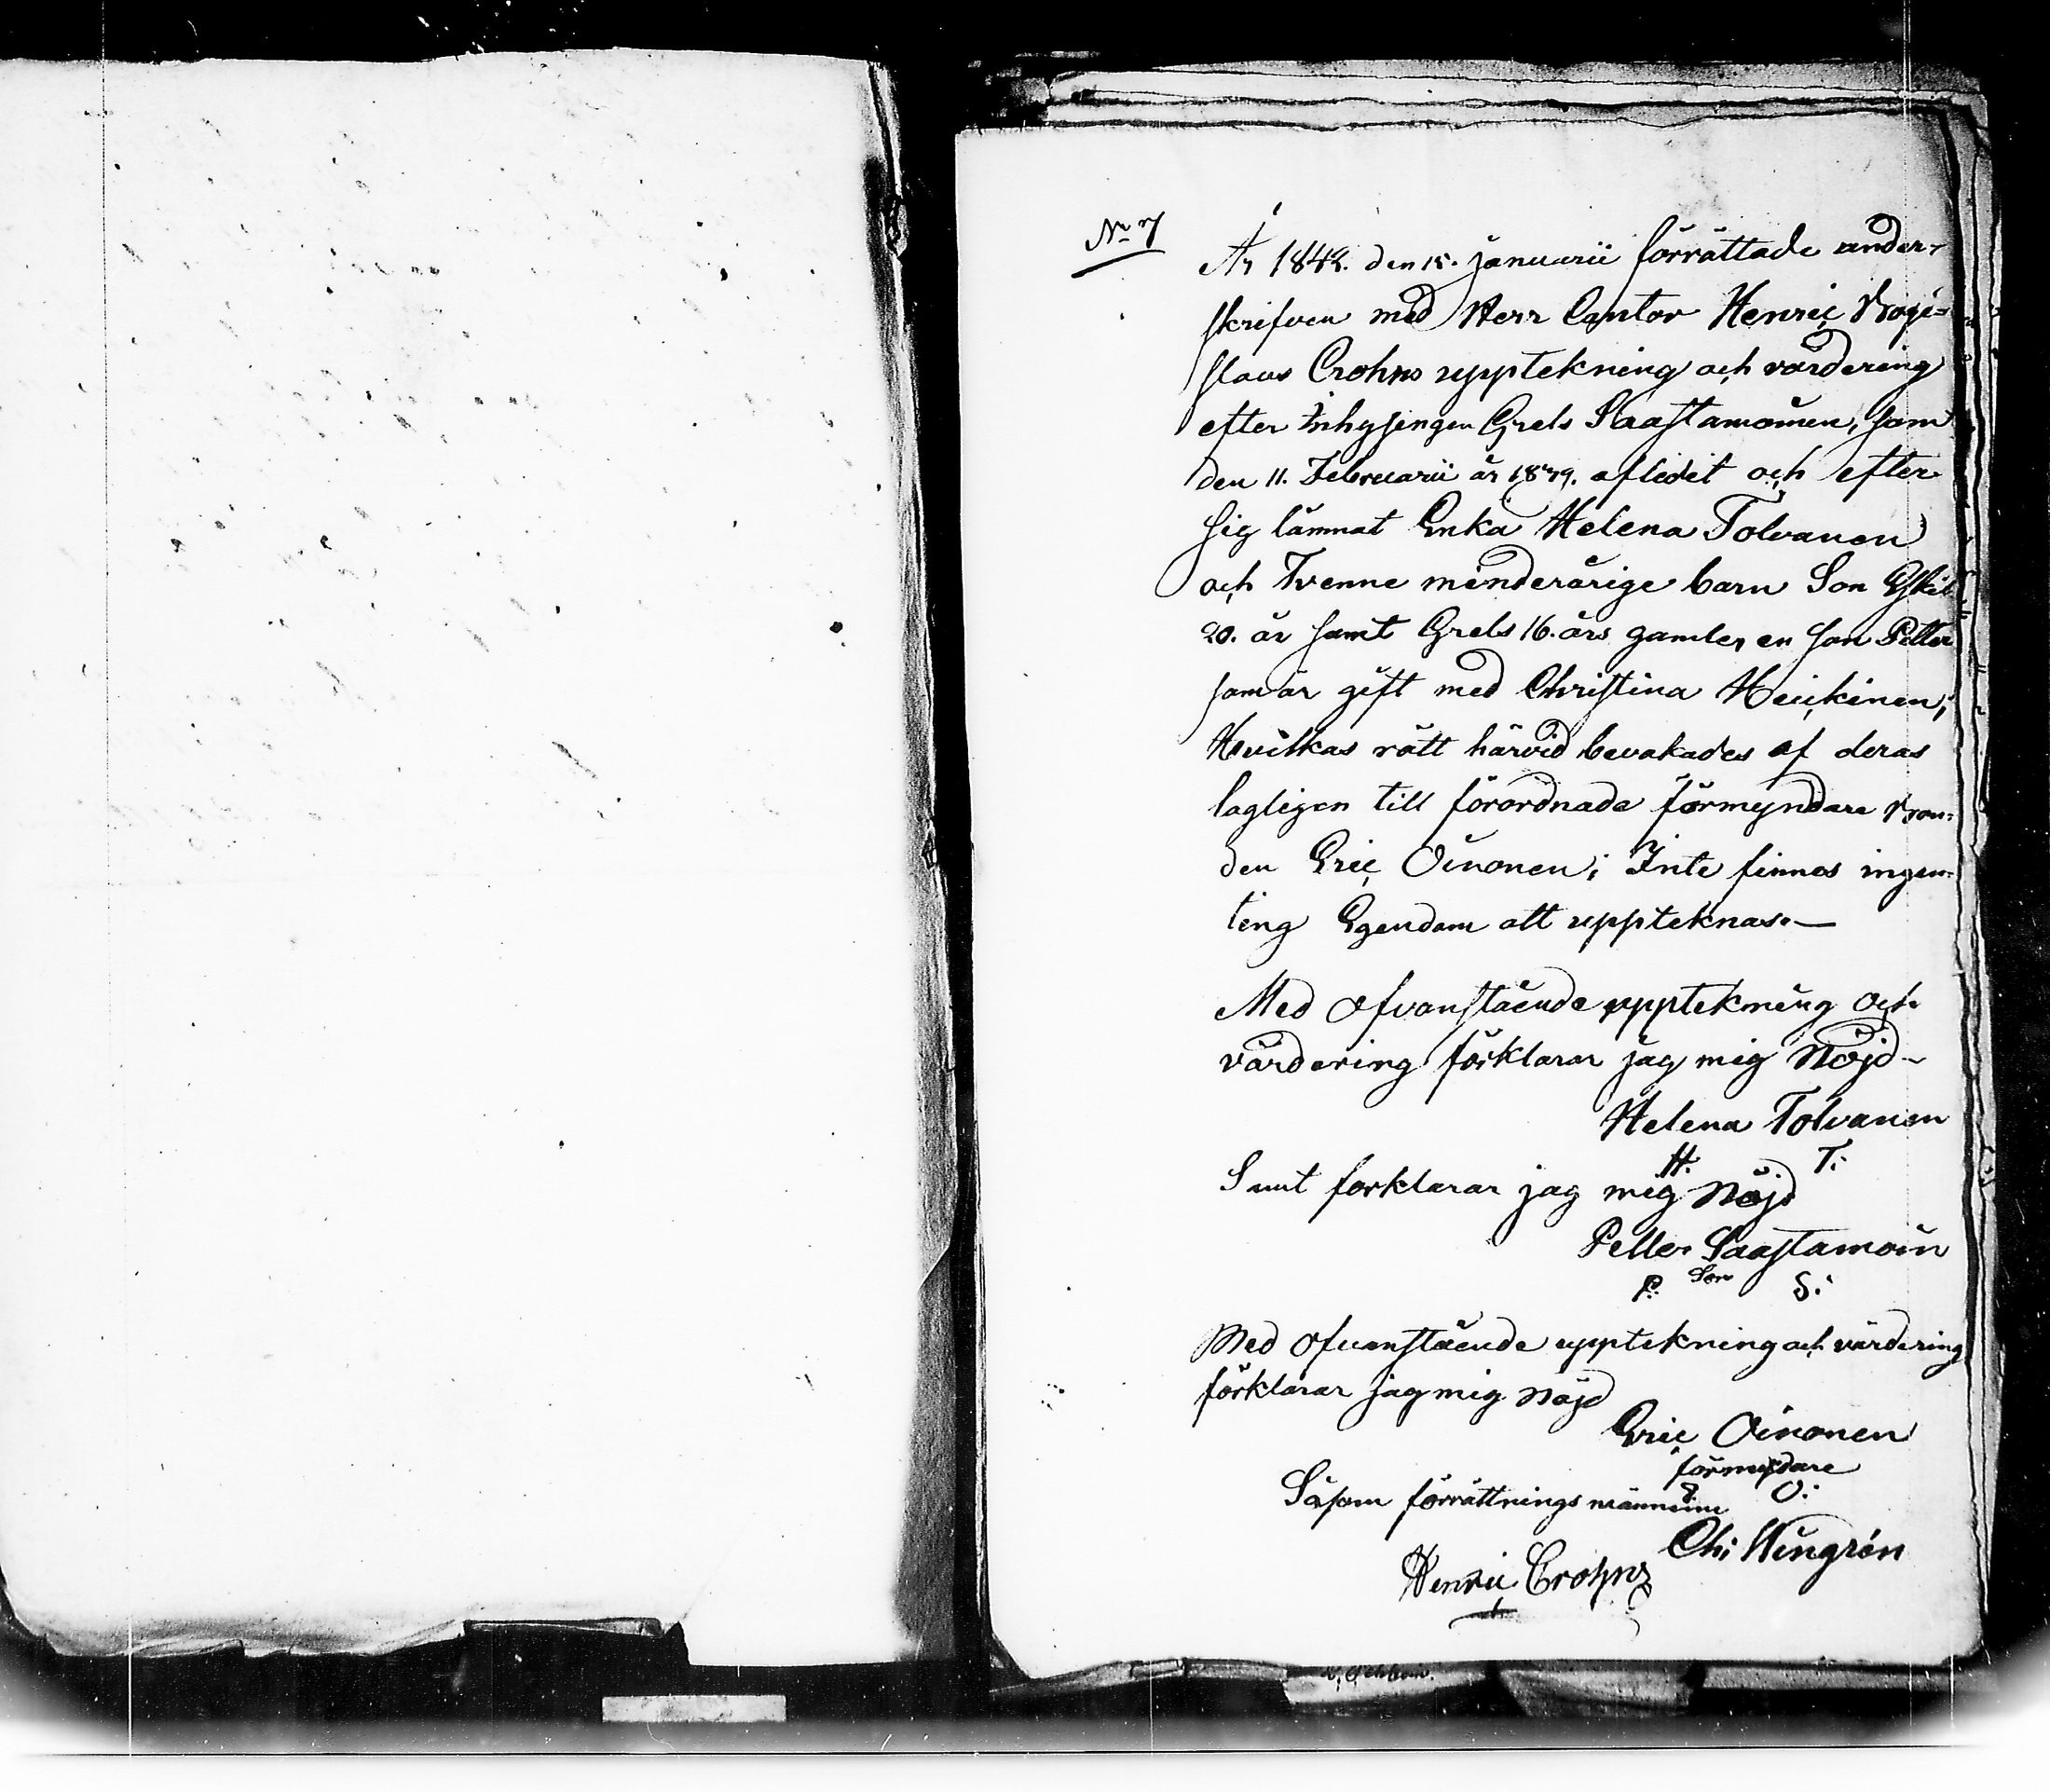 No 7
År 1842. den 15. januarii förrättade under-
skrifven med Herr Cantor Henric Bogi=
slaus Crohns upptekning och värdering
efter Inhysingen Grels Saastamoinen, som
den 11. Februarii år 1839. aflidit och efter
sig lämnat Enka Helena Tolvanen
och Tvenne minderårige barn Son Eskil
20. år samt Grels 16. års gamler en son Petter
som är gift med Christina Heickinen;
Hvilkas rätt härvid bevakades af deras
lagligen till förordnade förmyndare Bon=
den Eric Oinonen; Inte finnes ingen=
ting Egendom att uppteknas.—
Med ofvanstående upptekning och
värdering förklarar jag mig Nöjd-
Helena Tolvanen
H. T:
Samt forklarar jag mig Nöjd
Petter Saastamoin
P. Son S:
Med ofvanstående upptekning och värdering
förklarar jag mig Nöjd
Eric Oinonen
förmyndare
O:
Såsom förrättnings männerne
Ch: Wingrén
Henric Crohns